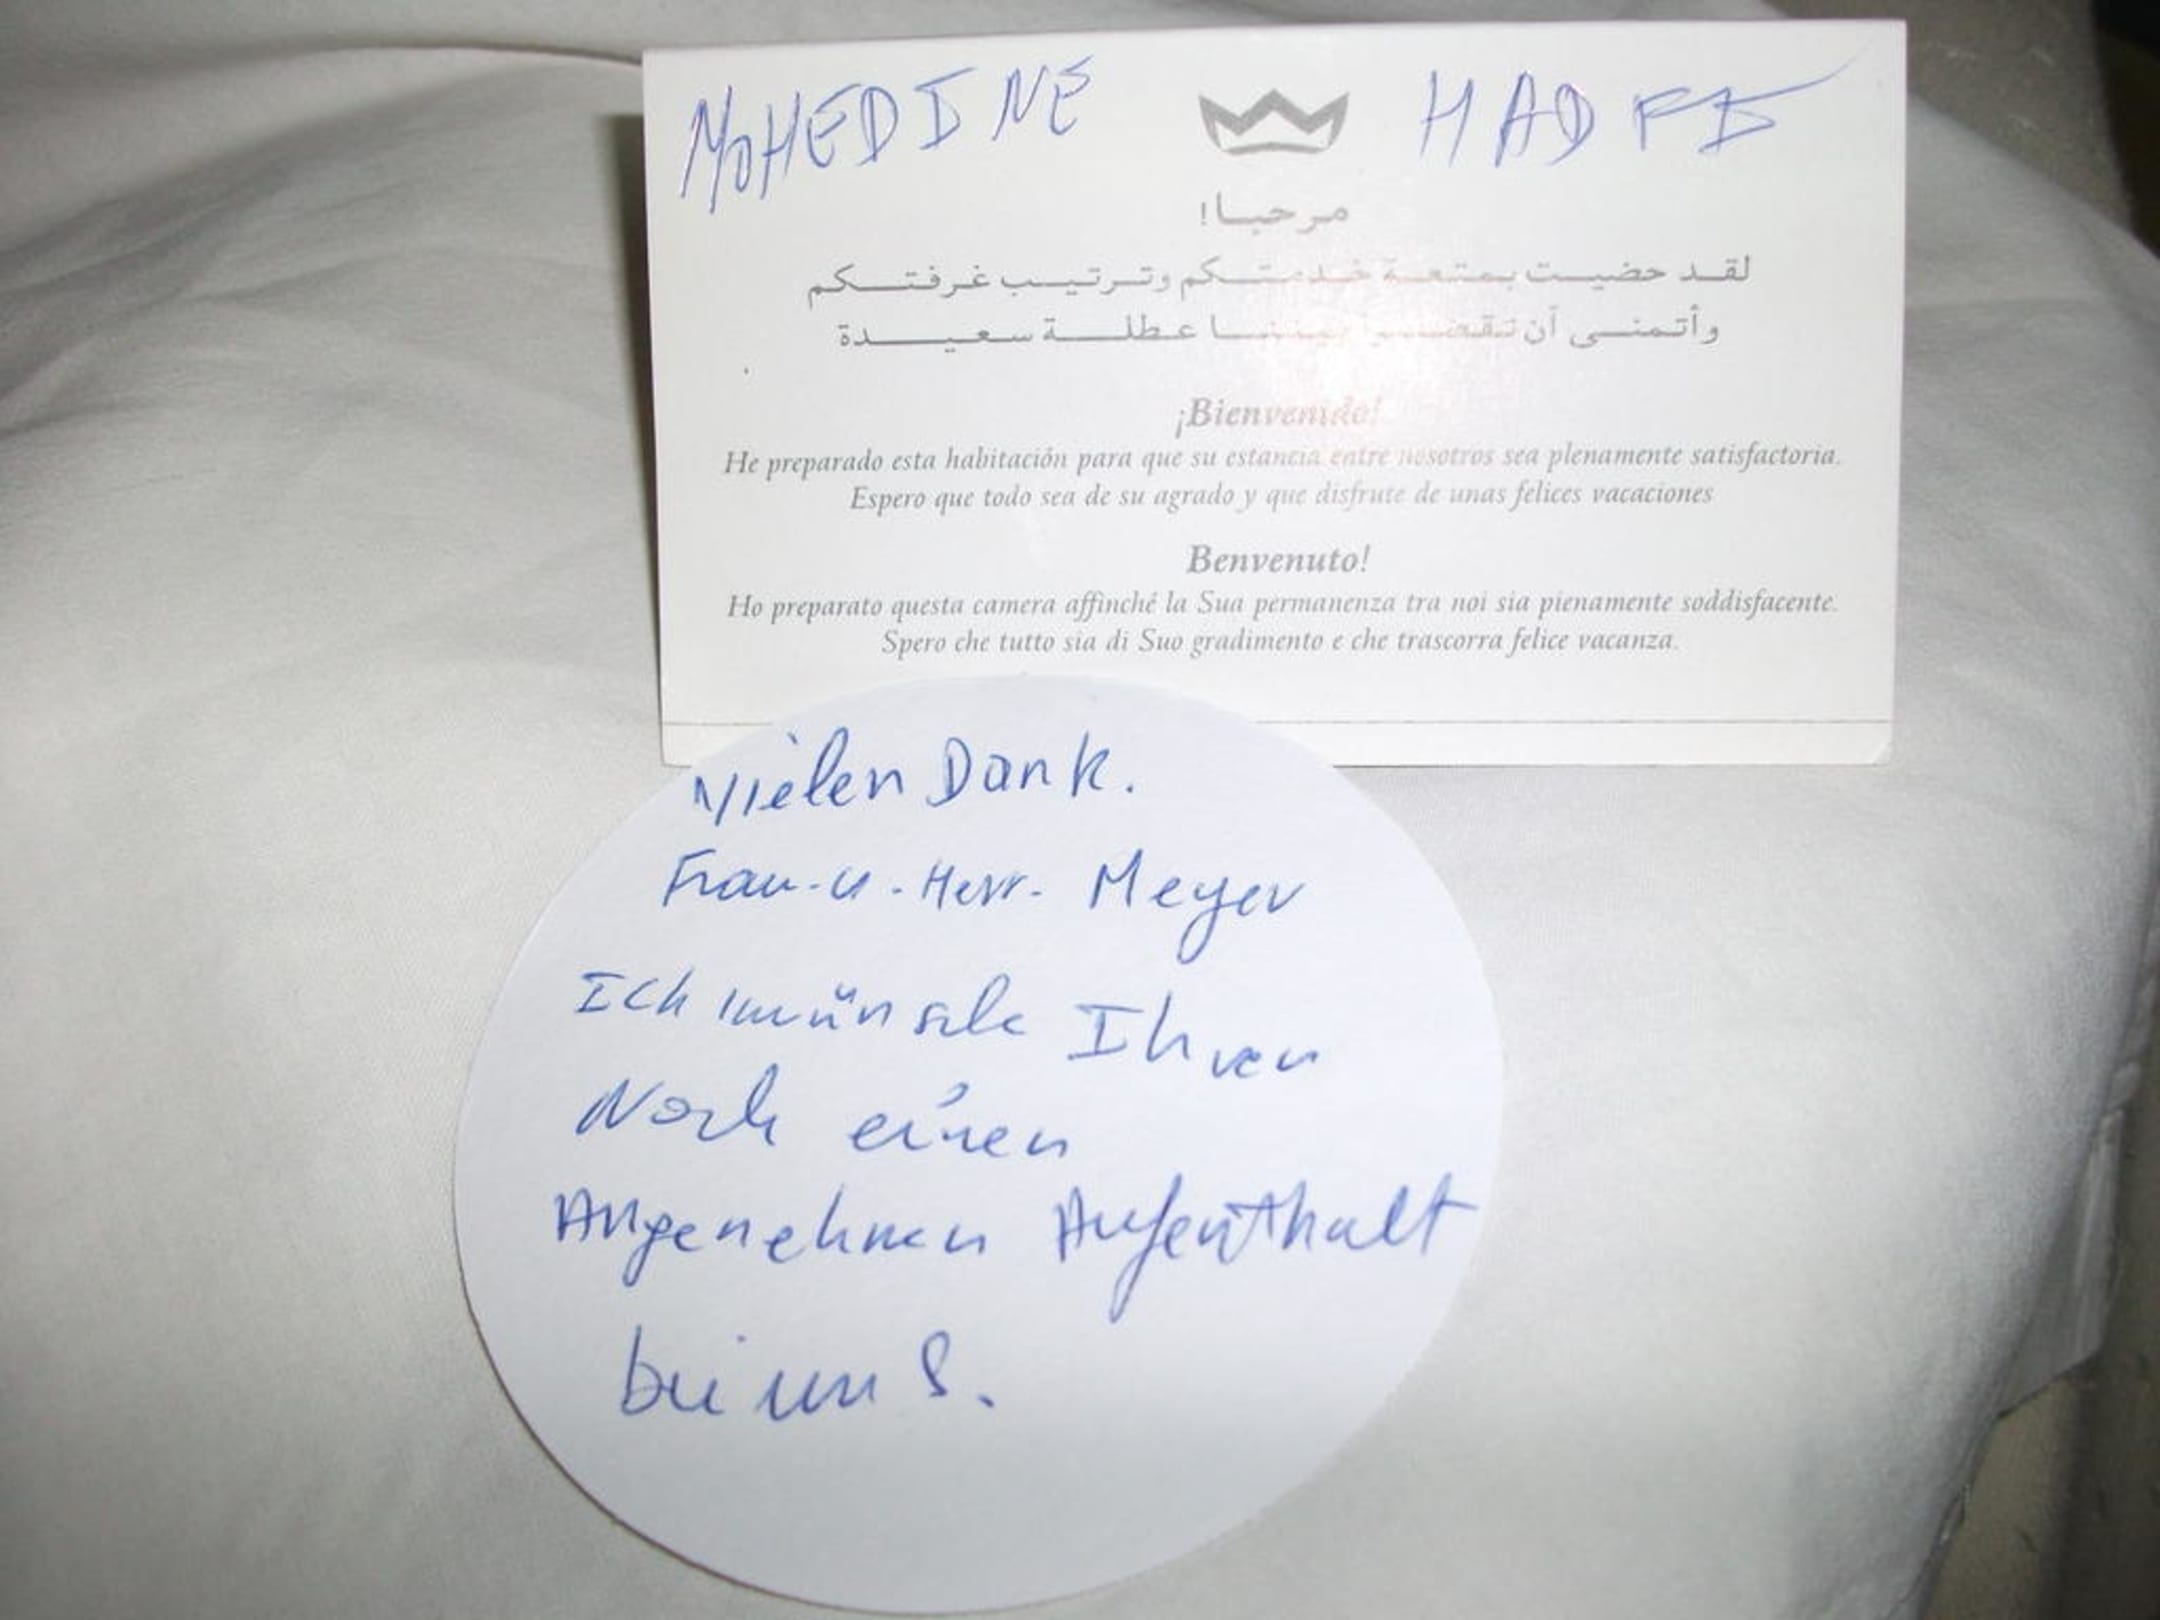 MOHEDINE HADFI
مرحبا!
لقد حضيت بمتعة خدمتكم وترتيب غرفتكم
وأتمنى أن تقضوا بيننا عطلة سعيدة
¡Bienvenido!
He preparado esta habitación para que su estancia entre nosotros sea plenamente satisfactoria.
Espero que todo sea de su agrado y que disfrute de unas felices vacaciones
Benvenuto!
Ho preparato questa camera affinché la Sua permanenza tra noi sia pienamente soddisfacente.
Spero che tutto sia di Suo gradimento e che trascorra felice vacanza.
Vielen Dank.
Frau-u.-Herr-Meyer
Ich wünsche Ihnen
Noch einen
Angenehmen Aufenthalt
bei uns.